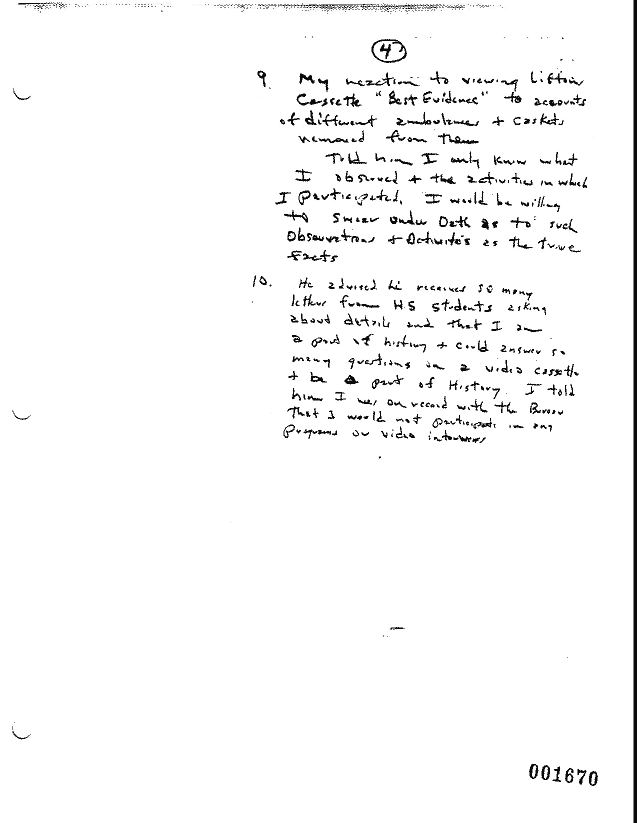 4
9. My reaction to viewing Lifton
Cassette "Best Evidence" to accounts
of different ambulances + caskets
removed from them
Told him I only know what
I observed + the activities in which
I participated. I would be willing
to swear under Oath as to such
Observations + Activities as the true
Facts
10. He advised he receives so many
letters from HS students asking
about details and that I am
a part of history + could answer so
many questions on a video cassette
+ be a part of History. I told
him I was on record with the Bureau
That I would not participate in any
Programs or video interviews
001670